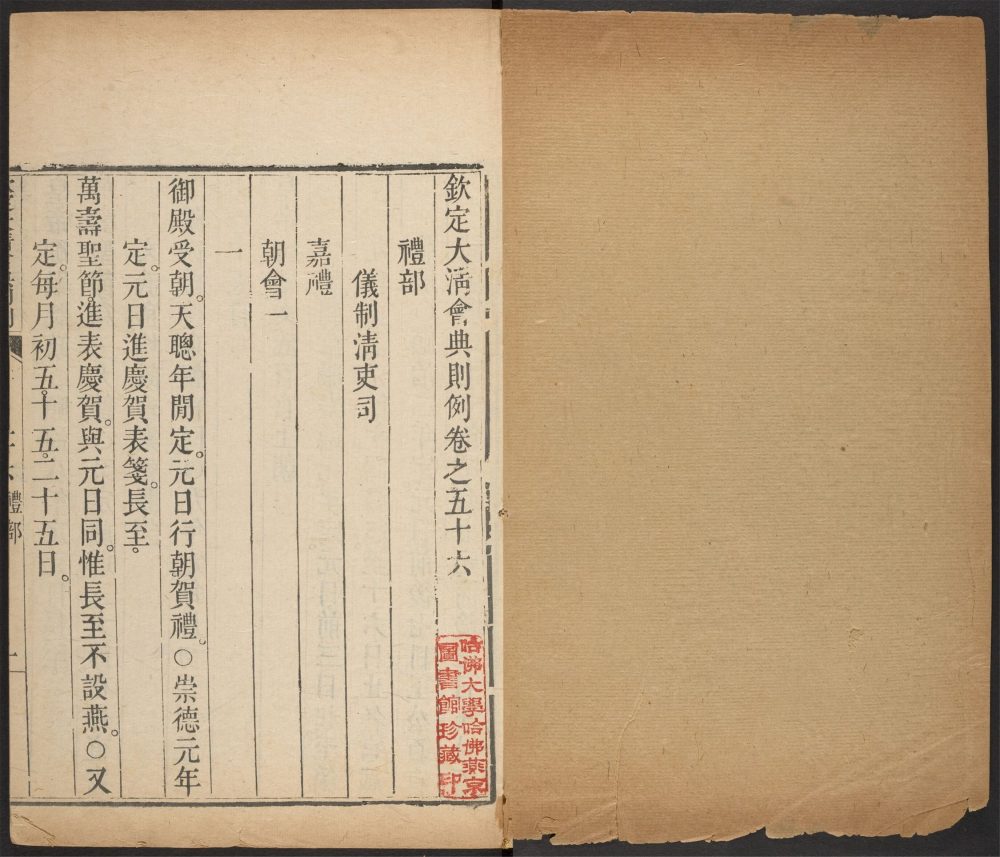 欽定大清會典則例卷之五十六
禮部
儀制清吏司
嘉禮
朝會一
一
御殿受朝。天聰年閒定。元日行朝賀禮。○崇德元年
定。元日進慶賀表箋。長至。
萬壽聖節。進表慶賀。與元日同。惟長至不設燕。○又
定。每月初五。十五。二十五日。
禮部
哈佛大學哈佛燕京
圖書館珍藏印